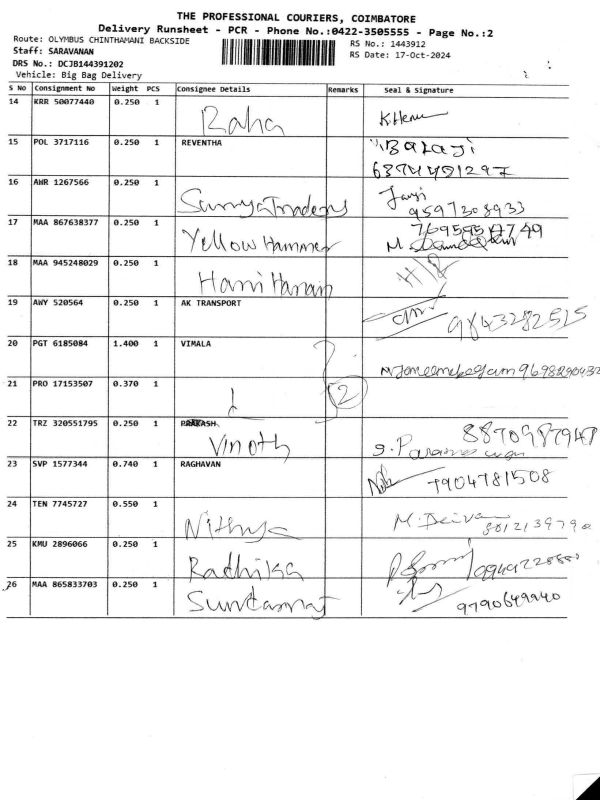 THE PROFESSIONAL COURIERS, COIMBATORE
Delivery Runsheet - PCR - Phone No.:0422-3505555 - Page No.:2
Route: OLYMBUS CHINTHAMANI BACKSIDE
RS No.: 1443912
Staff: SARAVANAN
RS Date: 17-Oct-2024
DRS No.: DCJB144391202
Vehicle: Big Bag Delivery
S No Consignment No Weight PCS Consignee Details Remarks Seal & Signature
14 KRR 50077440 0.250 1 Raha
15 POL 3717116 0.250 1 REVENTHA BALAJI
6374481297
16 AWR 1267566 0.250 1 Surya Traders
9597308933
17 MAA 867638377 0.250 1 Yellow Hammer
18 MAA 945248029 0.250 1 Hari Haran
19 AWY 520564 0.250 1 AK TRANSPORT 9843282515
20 PGT 6185084 1.400 1 VIMALA
21 PRO 17153507 0.370 1 2
22 TRZ 320551795 0.250 1 PRAKASH 8870987947
Vinoth
23 SVP 1577344 0.740 1 RAGHAVAN 7904781508
24 TEN 7745727 0.550 1 Nithya
25 KMU 2896066 0.250 1 Radhika
26 MAA 865833703 0.250 1 9790649940